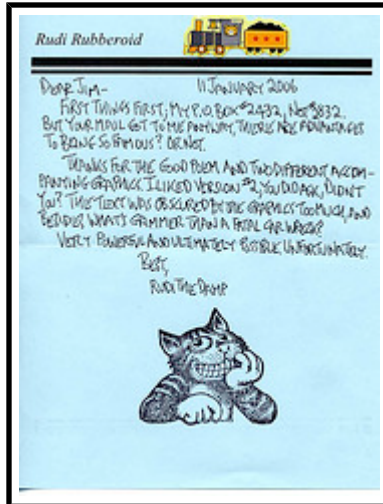 Rudi Rubberoid
DEAR JIM- 11 JANUARY 2006
FIRST THINGS FIRST; MY P.O. BOX #2432, NOT 9832.
BUT YOUR MAIL GOT TO ME ANYWAY, THERE ARE ADVANTAGES
TO BEING SO FAMOUS? OR NOT.
THANKS FOR THE GOD POEM AND TWO DIFFERENT ACCOM-
PANYING GRAPHICS. I LIKED VERSION #2, YOU DID ASK, DIDN'T
YOU? THE TEXT WAS OBSCURED BY THE GRAPHICS TOO MUCH, AND
BESIDES WHAT'S GRIMMER THAN A FATAL CAR WRECK?
VERY POWERFUL AND ULTIMATELY POSSIBLE UNFORTUNATELY.
BEST,
RUDI THE DAMP